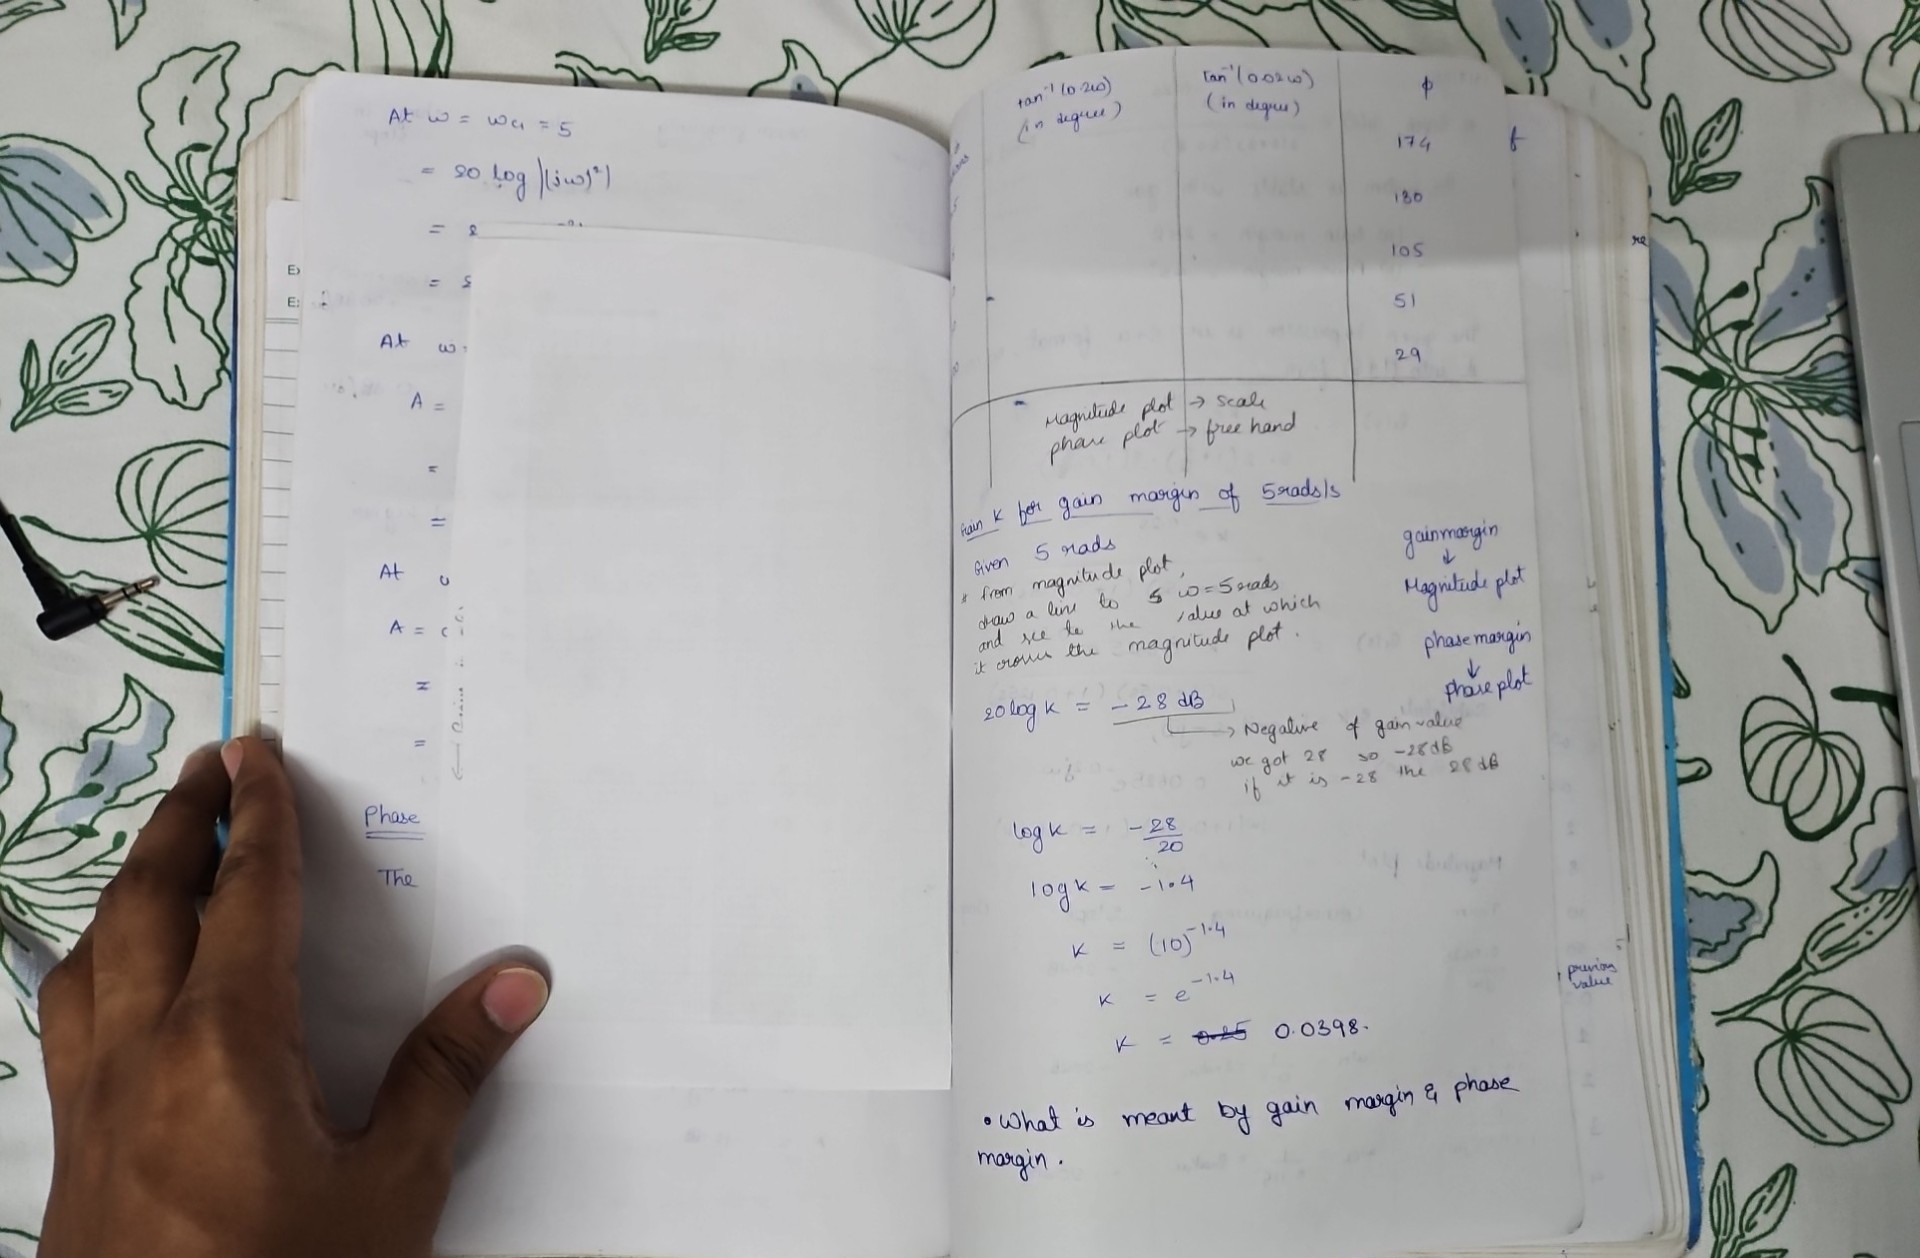 At ω = ωc1 = 5
= 20 log |(jω)²|
= 2
= 2
At ω
A =
=
=
At
A =
=
=
Phase
The
tan⁻¹(0.2ω)
(in degree)
tan⁻¹(0.02ω)
(in degree)
ϕ
174
180
105
51
29
Magnitude plot → scale
phase plot → free hand
Gain K for gain margin of 5rads/s
Given 5 rads
* from magnitude plot,
draw a line to 5 ω = 5 rads
and see to the value at which
it crosses the magnitude plot.
gain margin
↓
Magnitude plot
phase margin
↓
phase plot
20 log K = -28 dB
→ Negative of gain value
we got 28 so -28dB
if it is -28 the 28 dB
log K = -28/20
log K = -1.4
K = (10)^-1.4
K = e^-1.4
K = 0.0398.
• What is meant by gain margin & phase
margin.
re
previous
value